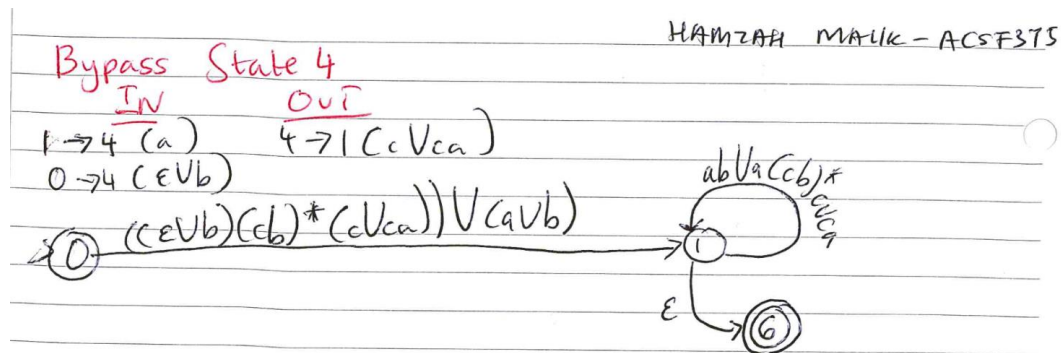 HAMZAH MALIK - ACSF375
Bypass State 4
IN OUT
1→4 (a) 4→1 (c∪ca)
0→4 (ε∪b)
ab∪a(cb)*
c∪ca
((ε∪b)(cb)*(c∪ca))∪(a∪b)
0 1
ε
6